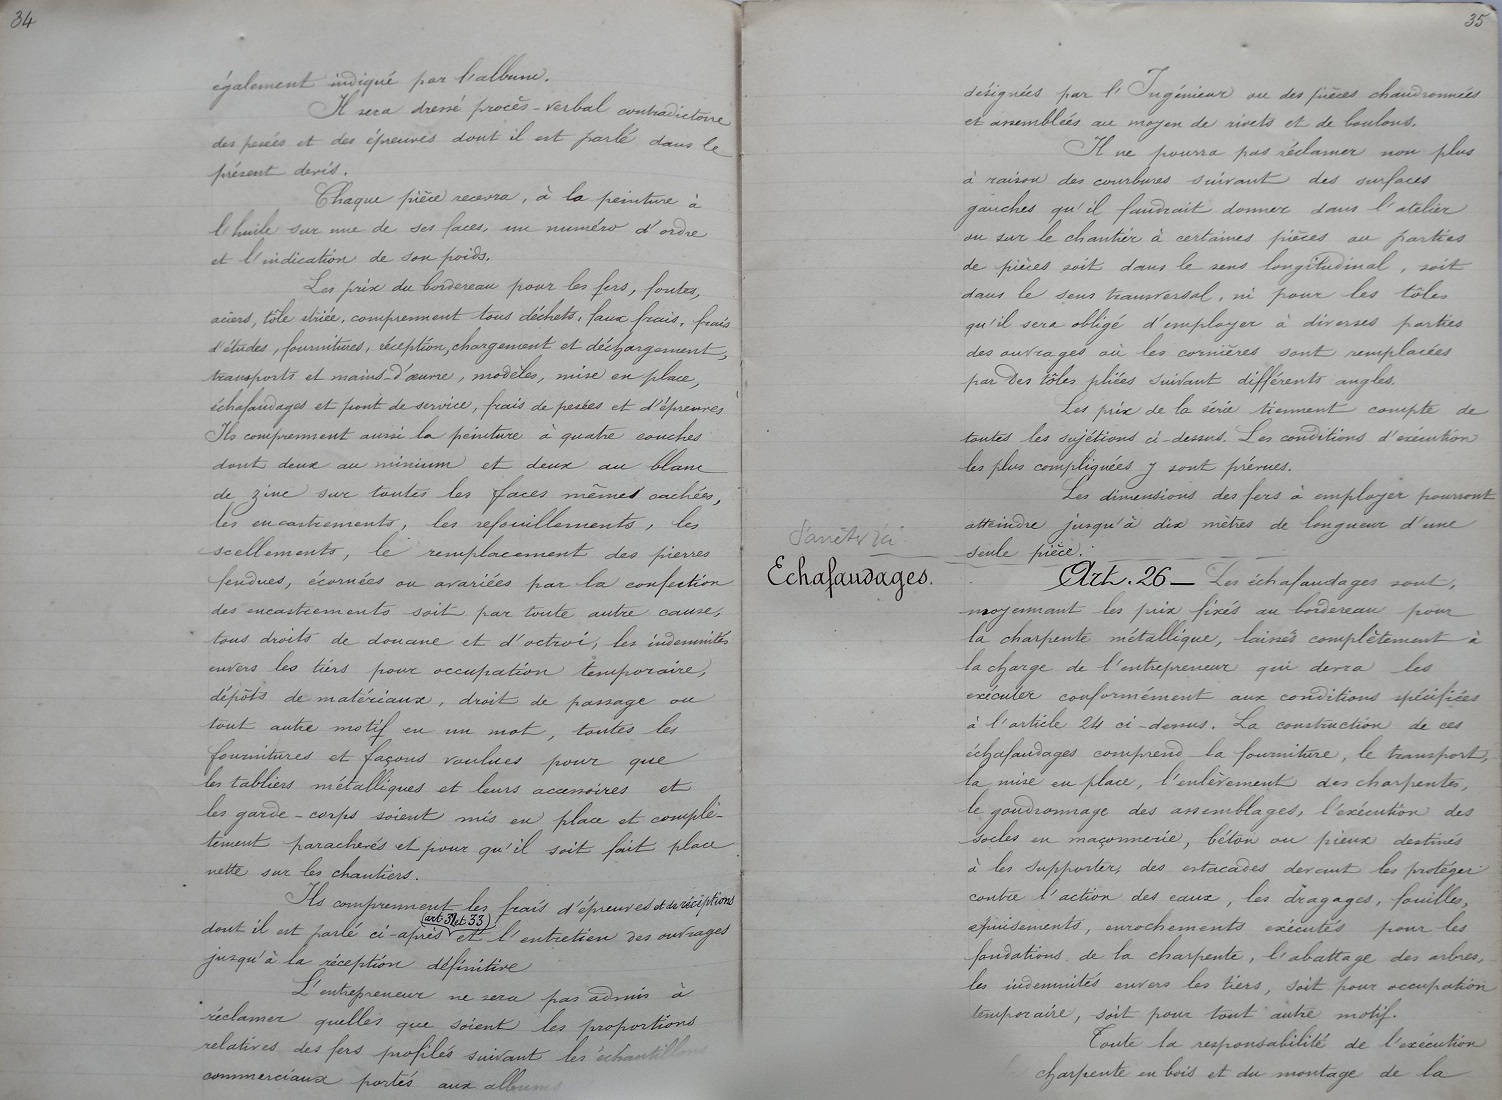 34
également indiqué par l'album.
Il sera dressé procès-verbal contradictoire
des pesées et des épreuves dont il est parlé dans le
présent devis.
Chaque pièce recevra, à la peinture à
l'huile sur une de ses faces, un numéro d'ordre
et l'indication de son poids.
Les prix du bordereau pour les fers, fontes,
aciers, tôle striée, comprennent tous déchets, faux frais, frais
d'études, fournitures, réception, chargement et déchargement,
transports et mains-d'œuvre, modèles, mise en place,
échafaudages et pont de service, frais de pesées et d'épreuves
Ils comprennent aussi la peinture à quatre couches
dont deux au minium et deux au blanc
de zinc sur toutes les faces mêmes cachées,
les encastrements, les refouillements, les
scellements, le remplacement des pierres
fendues, écornées ou avariées par la confection
des encastrements soit par toute autre cause,
tous droits de douane et d'octroi, les indemnités
envers les tiers pour occupation temporaire,
dépôts de matériaux, droit de passage ou
tout autre motif en un mot, toutes les
fournitures et façons voulues pour que
les tabliers métalliques et leurs accessoires et
les garde-corps soient mis en place et complè-
tement parachevés et pour qu'il soit fait place
nette sur les chantiers.
Ils comprennent les frais d'épreuves et de réceptions
(art 31 et 33)
dont il est parlé ci-après et l'entretien des ouvrages
jusqu'à la réception définitive
L'entrepreneur ne sera pas admis à
réclamer quelles que soient les proportions
relatives des fers profilés suivant les échantillons
commerciaux portés aux albums
35
désignées par l'Ingénieur ou des pièces chaudronnées
et assemblées au moyen de rivets et de boulons.
Il ne pourra pas réclamer non plus
à raison des courbures suivant des surfaces
gauches qu'il faudrait donner dans l'atelier
ou sur le chantier à certaines pièces ou parties
de pièces soit dans le sens longitudinal, soit
dans le sens transversal, ni pour les tôles
qu'il sera obligé d'employer à diverses parties
des ouvrages où les cornières sont remplacées
par des tôles pliées suivant différents angles.
Les prix de la série tiennent compte de
toutes les sujétions ci-dessus. Les conditions d'exécution
les plus compliquées y sont prévues.
Les dimensions des fers à employer pourront
atteindre jusqu'à dix mètres de longueur d'une
seule pièce.
Echafaudages.
Art. 26 — Les échafaudages sont,
moyennant les prix fixés au bordereau pour
la charpente métallique, laissés complètement à
la charge de l'entrepreneur qui devra les
exécuter conformément aux conditions spécifiées
à l'article 24 ci-dessus. La construction de ces
échafaudages comprend la fourniture, le transport,
la mise en place, l'enlèvement des charpentes,
le goudronnage des assemblages, l'exécution des
socles en maçonnerie, béton ou pieux destinés
à les supporter, des estacades devant les protéger
contre l'action des eaux, les dragages, fouilles,
épuisements, enrochements exécutés pour les
fondations de la charpente, l'abattage des arbres,
les indemnités envers les tiers, soit pour occupation
temporaire, soit pour tout autre motif.
Toute la responsabilité de l'exécution
charpente en bois et du montage de la